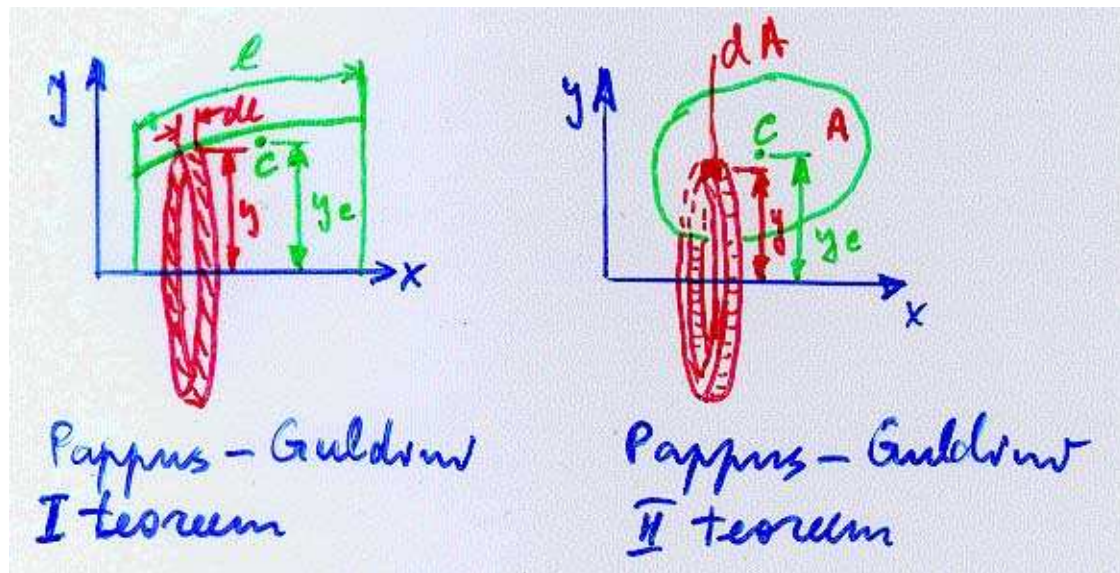 y
l
dl
C
y
yc
x
Pappus – Guldini
I teoreem
dA
y
C
A
y
yc
x
Pappus – Guldini
II teoreem